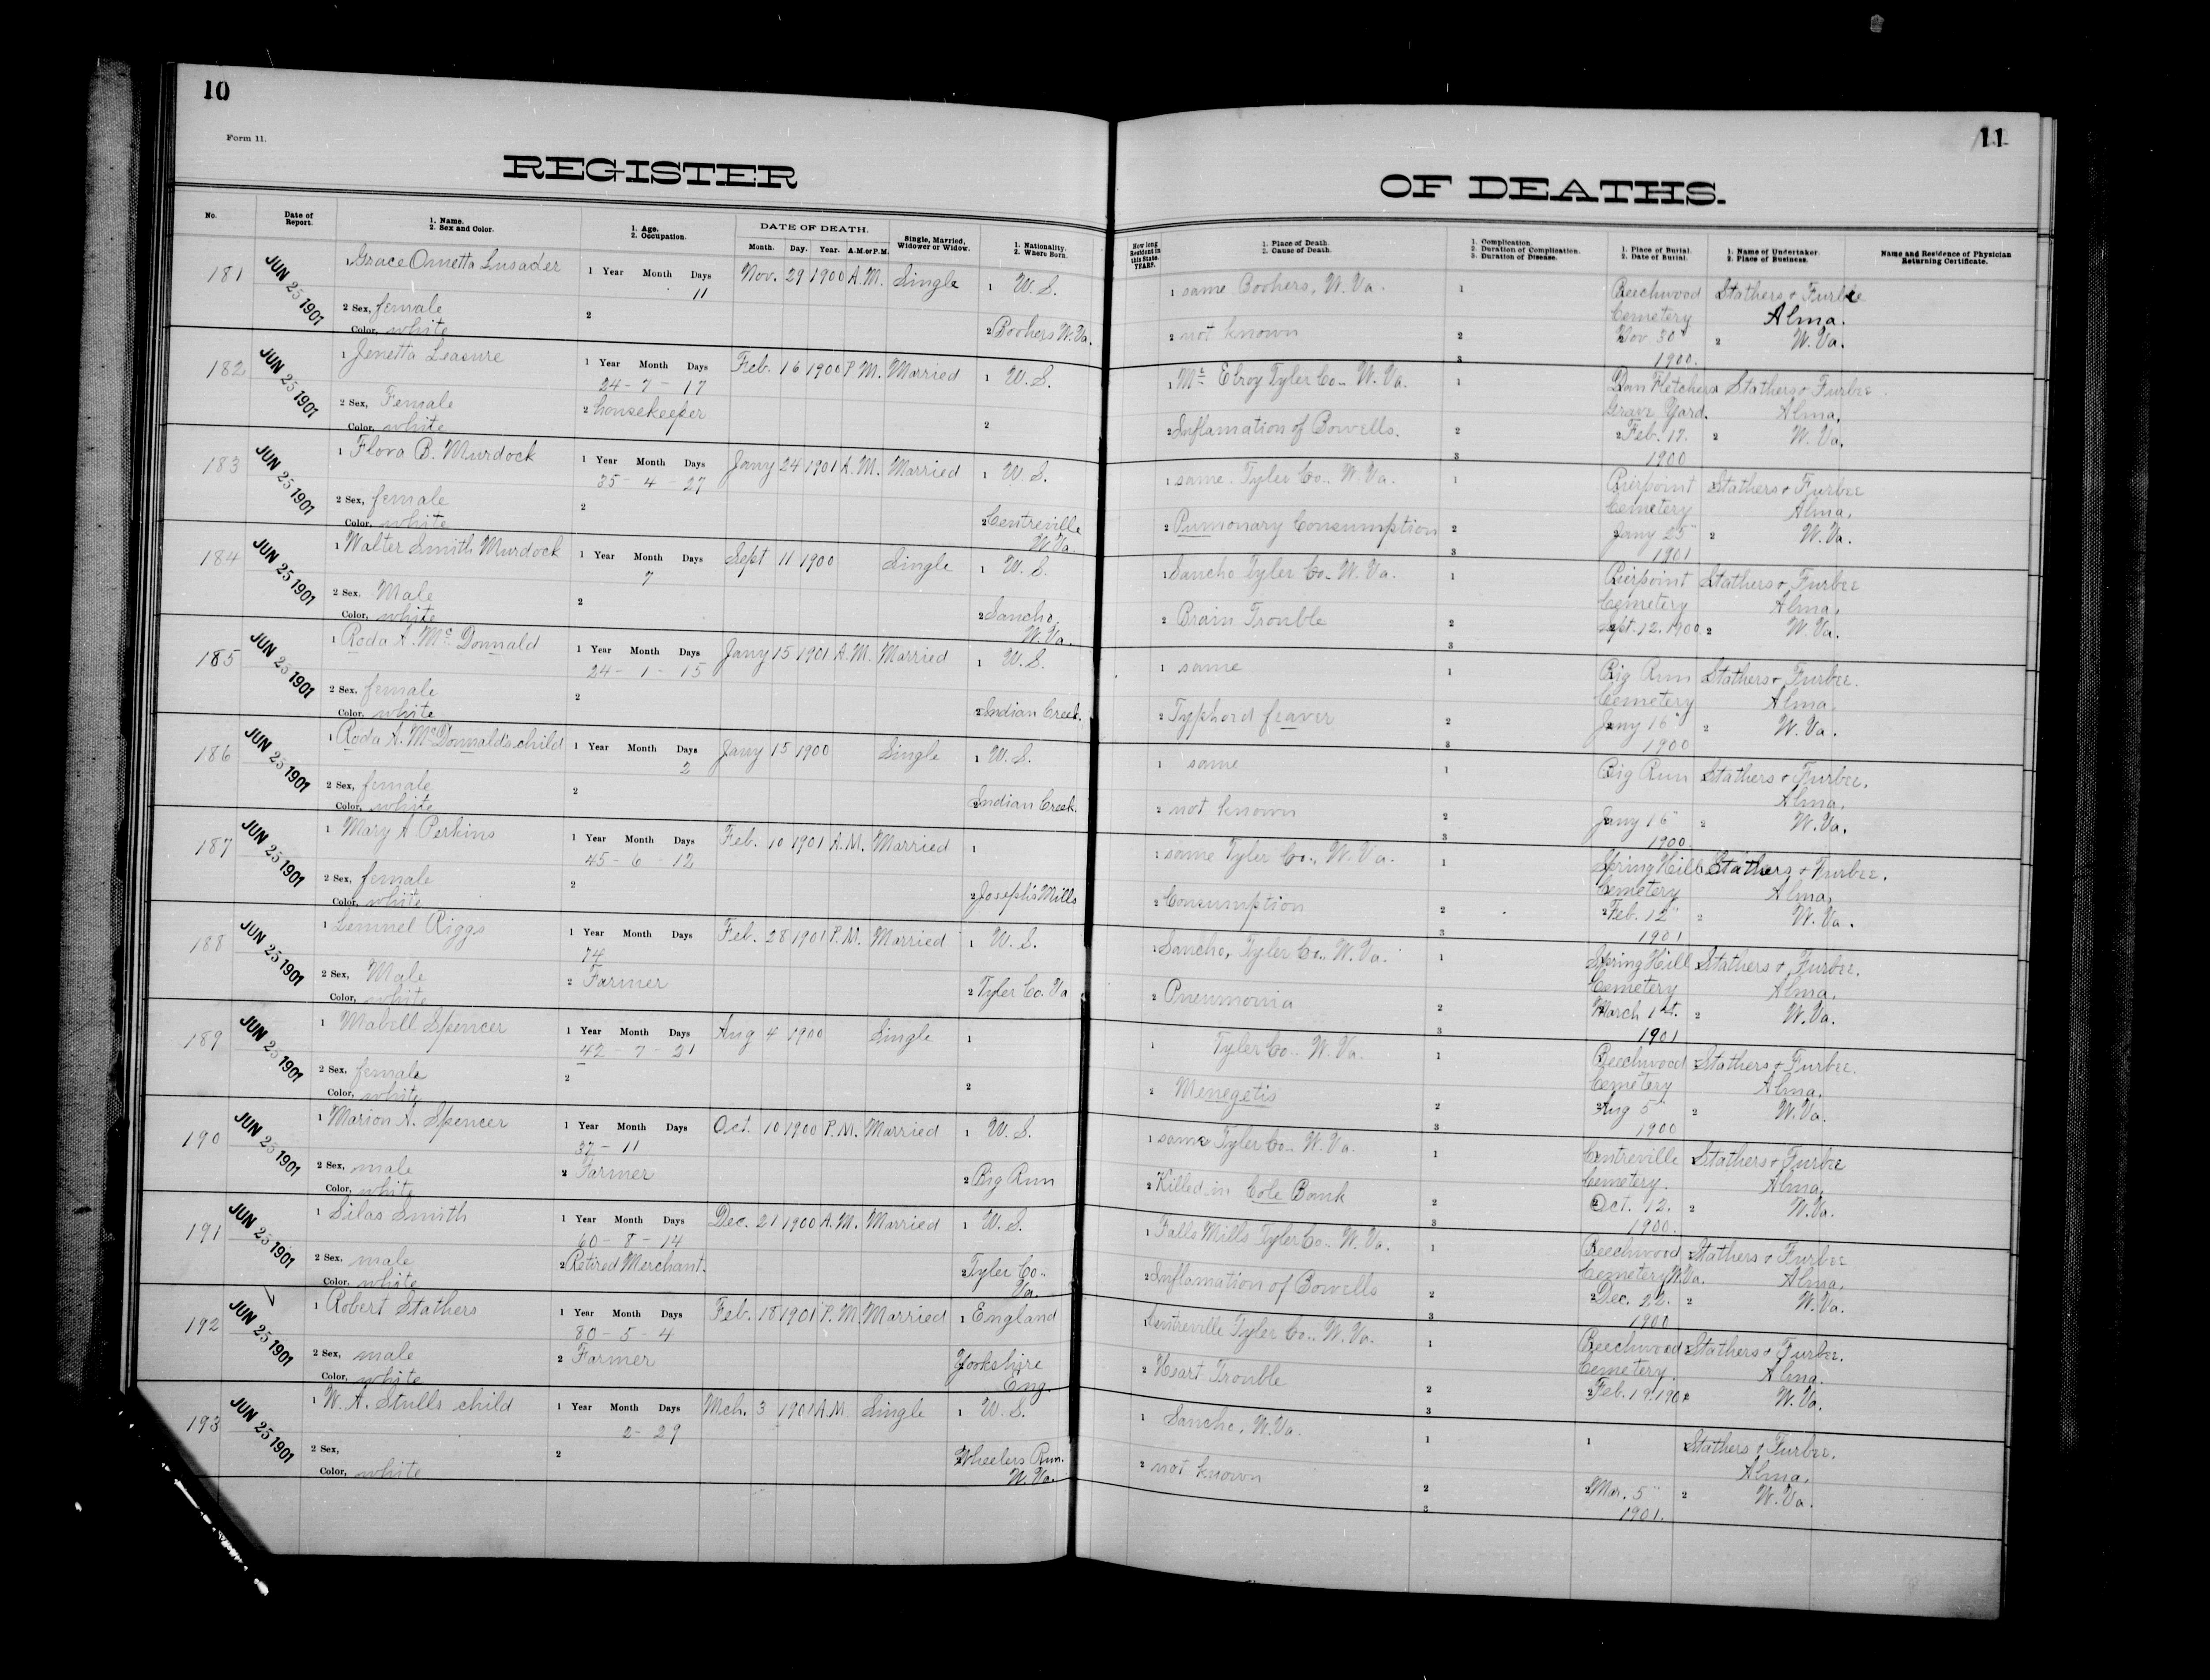 10
Form 11.
REGISTER
No.
Date of Report.
1. Name.
2. Sex and Color.
1. Age.
2. Occupation.
DATE OF DEATH.
Month. Day. Year. A.M. or P.M.
Single, Married,
Widower or Widow.
1. Nationality.
2. Where Born.
181 JUN 25 1901 1 Grace Ometta Lusader 1 Year Month Days Nov. 29 1900 A.M. Single 1 U.S.
11
2 Sex, female 2
Color, white 2 Boohers W.Va.
182 JUN 25 1901 1 Jenetta Leasure 1 Year Month Days Feb. 16 1900 P.M. Married 1 U.S.
24 - 7 - 17
2 Sex, Female 2 housekeeper
Color, white 2
183 JUN 25 1901 1 Flora B. Murdock 1 Year Month Days Jany 24 1901 A.M. Married 1 U.S.
35 - 4 - 27
2 Sex, female 2
Color, white 2 Centreville W.Va.
184 JUN 25 1901 1 Walter Smith Murdock 1 Year Month Days Sept 11 1900 Single 1 U.S.
7
2 Sex, Male 2
Color, white 2 Sancho, W.Va.
185 JUN 25 1901 1 Roda A. McDonnald 1 Year Month Days Jany 15 1901 A.M. Married 1 U.S.
24 - 1 - 15
2 Sex, female 2
Color, white 2 Indian Creek.
186 JUN 25 1901 1 Roda A. McDonnald's child 1 Year Month Days Jany 15 1900 Single 1 U.S.
2
2 Sex, female 2
Color, white 2 Indian Creek.
187 JUN 25 1901 1 Mary A. Perkins 1 Year Month Days Feb. 10 1901 A.M. Married 1
45 - 6 - 12
2 Sex, female 2
Color, white 2 Joseph's Mills
188 JUN 25 1901 1 Lemuel Riggs 1 Year Month Days Feb. 28 1901 P.M. Married 1 U.S.
74
2 Sex, Male 2 Farmer
Color, white 2 Tyler Co. Va
189 JUN 25 1901 1 Mabell Spencer 1 Year Month Days Aug 4 1900 Single 1
42 - 7 - 21
2 Sex, female 2
Color, white 2
190 JUN 25 1901 1 Marion A. Spencer 1 Year Month Days Oct. 10 1900 P.M. Married 1 U.S.
37 - 11
2 Sex, male 2 Farmer
Color, white 2 Big Run
191 JUN 25 1901 1 Silas Smith 1 Year Month Days Dec. 21 1900 A.M. Married 1 U.S.
60 - 8 - 14
2 Sex, male 2 Retired Merchant.
Color, white 2 Tyler Co. Va.
192 JUN 25 1901 1 Robert Stathers 1 Year Month Days Feb. 18 1901 P.M. Married 1 England
80 - 5 - 4
2 Sex, male 2 Farmer
Color, white Yorkshire Eng.
193 JUN 25 1901 1 W. A. Stulls child 1 Year Month Days Mch. 3 1901 A.M. Single 1 U.S.
2 - 29
2 Sex, 2
Color, white 2 Wheelers Run. W.Va.
11
OF DEATHS.
How long Resident in this State. YEARS.
1. Place of Death.
2. Cause of Death.
1. Complication.
2. Duration of Complication.
3. Duration of Disease.
1. Place of Burial.
2. Date of Burial.
1. Name of Undertaker
2. Place of Business.
Name and Residence of Physician
Returning Certificate.
1 same Boohers, W.Va. 1 Beechwood Stathers & Furbee
Cemetery Alma.
2 not known 2 Nov. 30" 2 W.Va.
3 1900.
1 Mc Elroy Tyler Co. W.Va. 1 Dan Fletchers Stathers & Furbee
Grave Yard. Alma,
2 Inflamation of Bowells. 2 2 Feb. 17. 2 W.Va.
3 1900
1 same. Tyler Co. W.Va. 1 Pierpoint Stathers & Furbee
Cemetery Alma,
2 Pumonary Consumption 2 Jany 25" 2 W.Va.
3 1901
1 Sancho Tyler Co. W.Va. 1 Pierpoint Stathers & Furbee
Cemetery Alma,
2 Brain Trouble 2 Sept. 12. 1900 2 W.Va.
3
1 same 1 Big Run Stathers & Furbee.
Cemetery Alma,
2 Typhord feaver 2 Jany 16" 2 W.Va.
3 1900
1 same 1 Big Run Stathers & Furbee.
Alma,
2 not known 2 Jany 16" 2 W.Va.
3 1900
1 same Tyler Co., W.Va. 1 Spring Hill Stathers & Furbee.
Cemetery Alma,
2 Consumption 2 2 Feb. 12" 2 W.Va.
3 1901
1 Sancho, Tyler Co., W.Va. 1 Spring Hill Stathers & Furbee.
Cemetery Alma,
2 Pneumonia 2 March 1st. 2 W.Va.
3 1901
1 Tyler Co. W.Va. 1 Beechwood Stathers & Furbee.
Cemetery Alma,
2 Menegetis 2 2 Aug 5" 2 W.Va.
3 1900
1 same Tyler Co. W.Va. 1 Centreville Stathers & Furbee
Cemetery. Alma,
2 Killed in Cole Bank 2 2 Oct. 12. 2 W.Va.
3 1900.
1 Falls Mills Tyler Co. W.Va. 1 Beechwood Stathers & Furbee
Cemetery W.Va. Alma,
2 Inflamation of Bowells 2 2 Dec. 22. 2 W.Va.
3 1900
1 Centreville Tyler Co., W.Va. 1 Beechwood Stathers & Furbee.
Cemetery. Alma.
2 Heart Trouble 2 2 Feb. 19. 1901 W.Va.
3
1 Sancho, W.Va. 1 1 Stathers & Furbee.
Alma,
2 not known 2 2 Mar. 5" 2 W.Va.
3 1901.